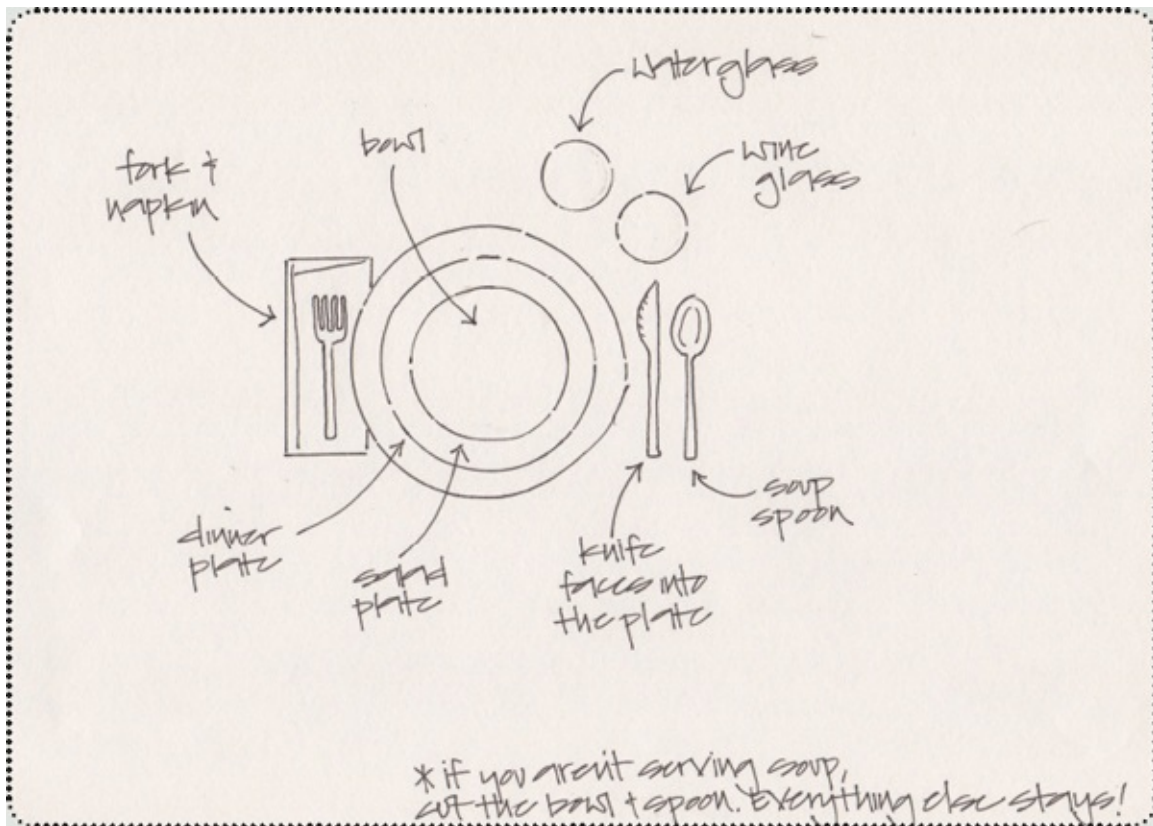 water glass
wine
glass
bowl
fork +
napkin
dinner
plate
salad
plate
knife
faces into
the plate
soup
spoon
* if you aren't serving soup,
cut the bowl + spoon. Everything else stays!